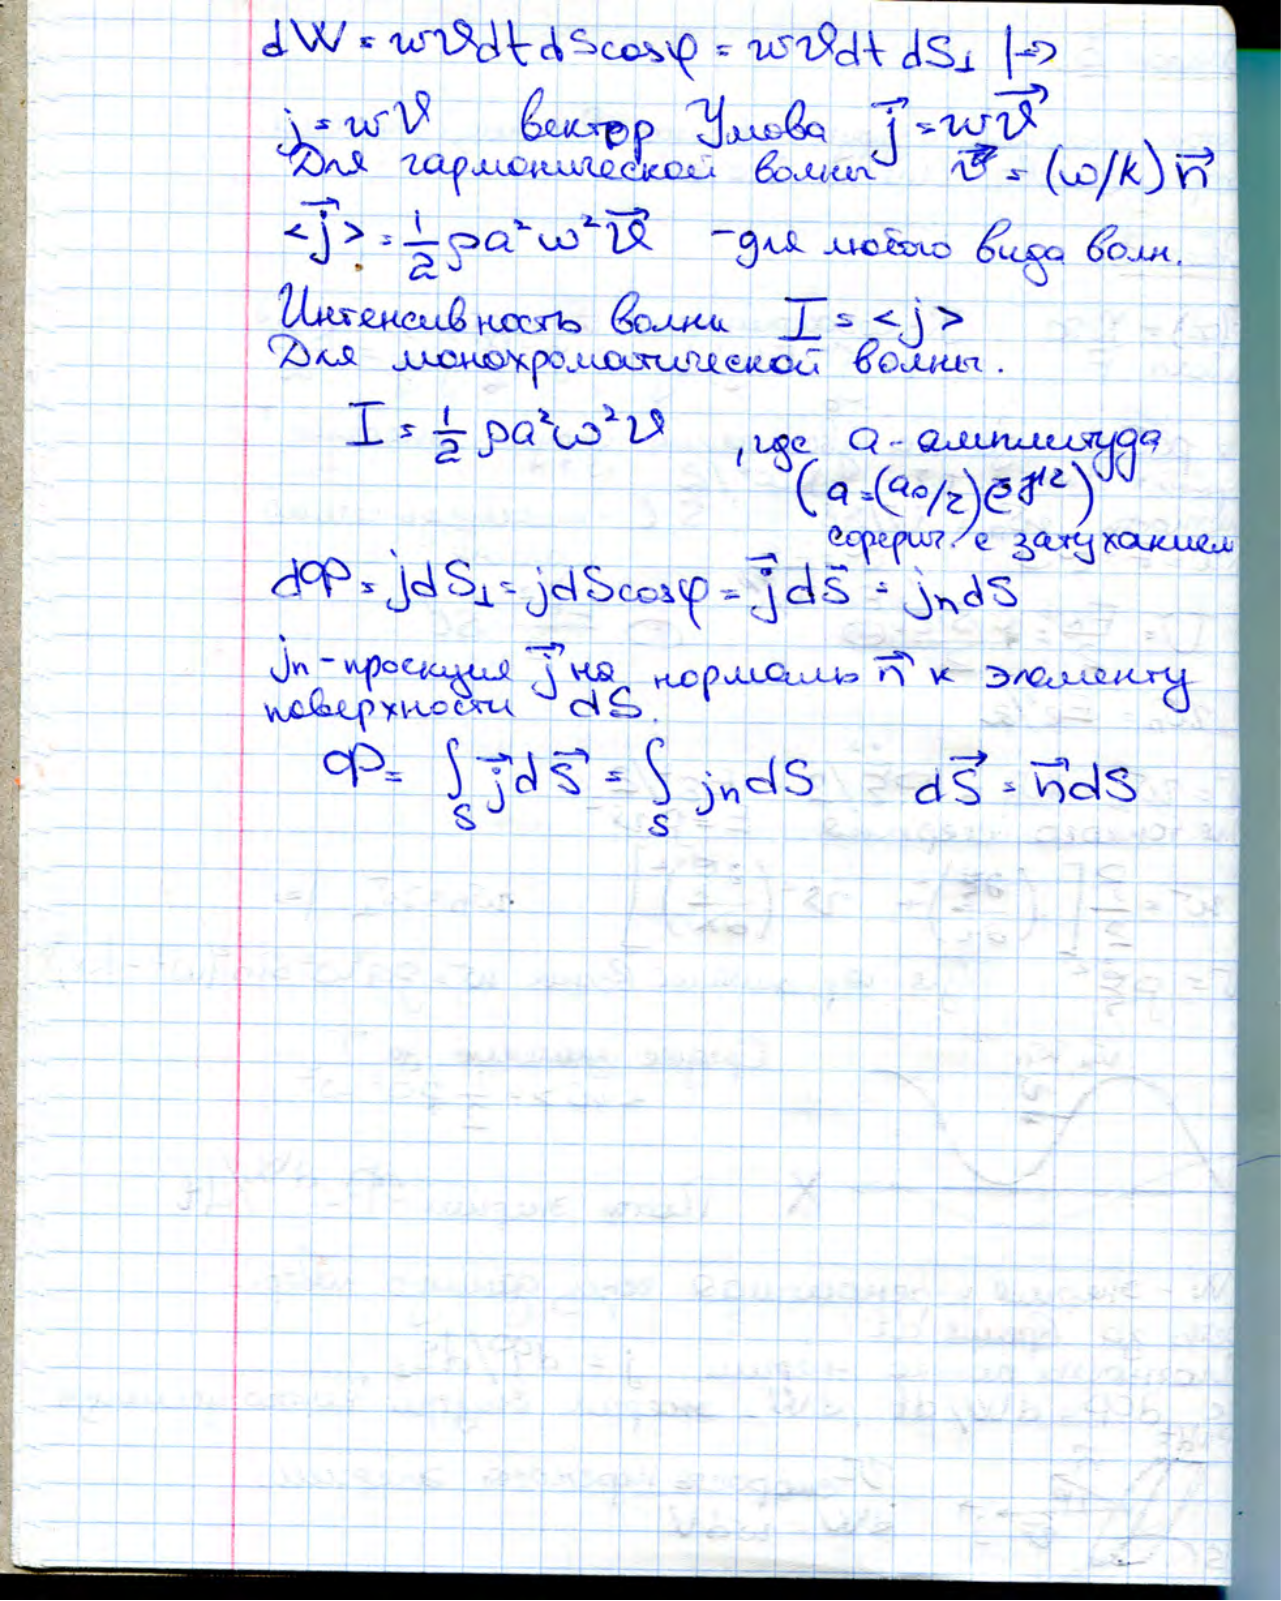 dW = wϑdt dS cosφ = wϑdt dS⊥ |=>
j = wϑ вектор Умова j⃗ = wϑ⃗
Для гармонической волны ϑ⃗ = (ω/k) n⃗
<j⃗> = 1/2 ρa²ω²ϑ⃗ - для любого вида волн.
Интенсивность волны I = <j>
Для монохроматической волны.
I = 1/2 ρa²ω²ϑ , где a - амплитуда
(a = (a₀/r)e^-γr)
сферич. с затуханием
dФ = jdS⊥ = jdS cosφ = j⃗ dS⃗ = jₙdS
jₙ - проекция j⃗ на нормаль n⃗ к элементу
поверхности dS.
Ф = ∫_S j⃗ dS⃗ = ∫_S jₙdS dS⃗ = n⃗dS